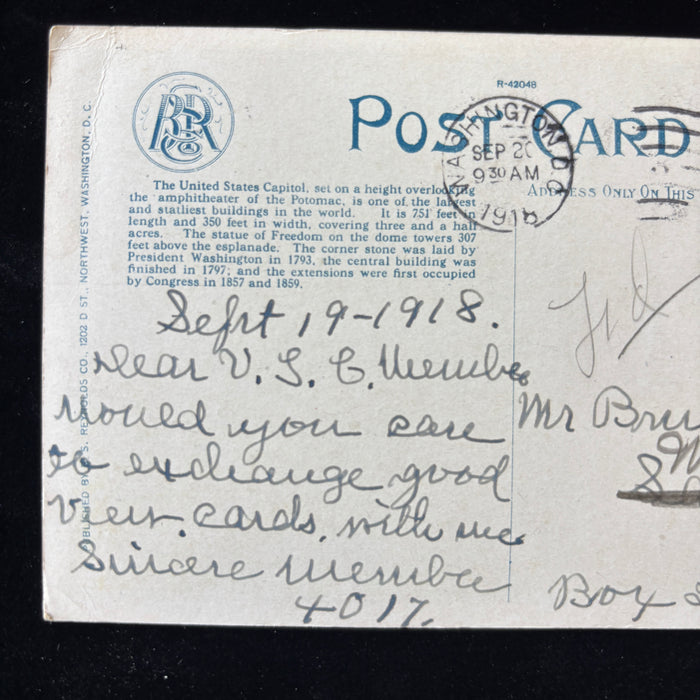 R-42048
POST CARD
WASHINGTON D.C.
SEP 20
9 30 AM
1918
ADDRESS ONLY ON THIS
BSR
The United States Capitol, set on a height overlooking
the amphitheater of the Potomac, is one of the largest
and statliest buildings in the world. It is 751 feet in
length and 350 feet in width, covering three and a half
acres. The statue of Freedom on the dome towers 307
feet above the esplanade. The corner stone was laid by
President Washington in 1793, the central building was
finished in 1797; and the extensions were first occupied
by Congress in 1857 and 1859.
PUBLISHED BY B. S. REYNOLDS CO., 1202 D ST., NORTHWEST, WASHINGTON, D. C.
Sept 19-1918.
Dear V. S. C. Member
would you care
to exchange good
view cards, with me
Sincere member
4017.
Mr Bru
Box